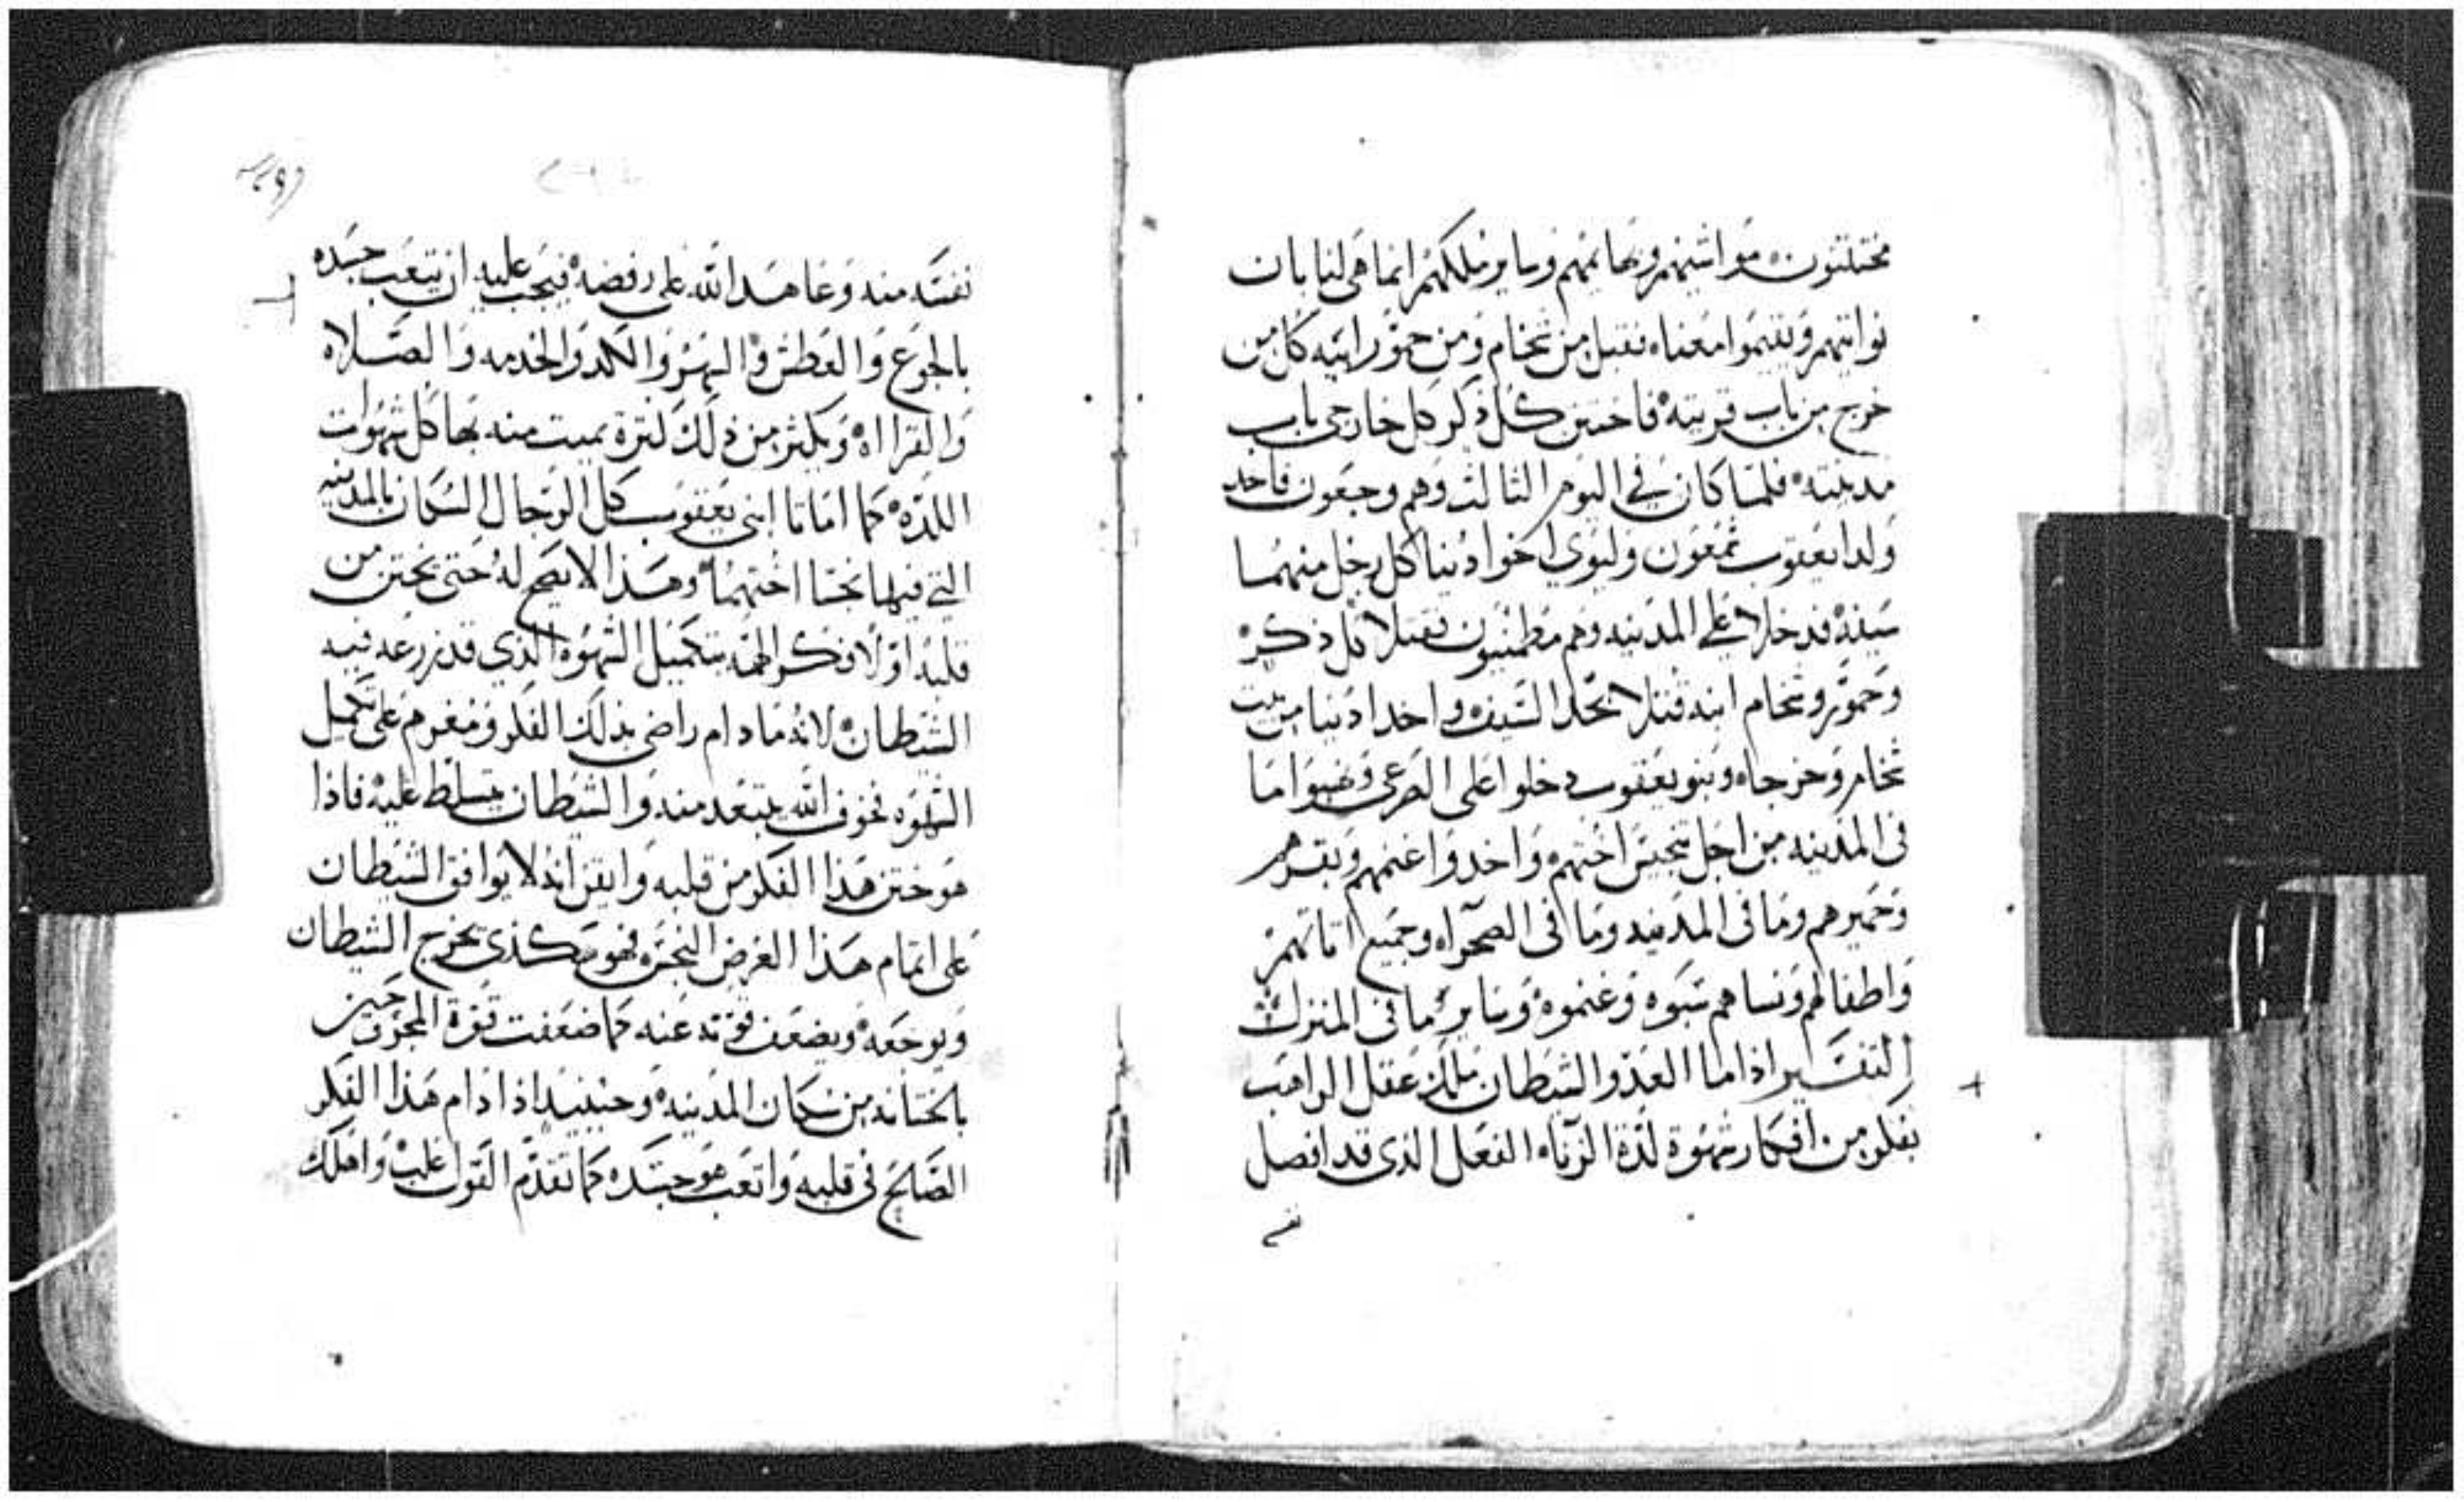 مختتنون مواشيهم وبهايمهم وساير ملكهم انما هى لنا بان
نواتيهم ويقيموا معنا فقبل من شخام ومن حمور ابيه كل من
خرج من باب قريته فاختتن كل ذكر كل خارجى باب
مدينته فلما كان في اليوم الثالث وهم وجعون فاخد
ولدا يعقوب شمعون وليوي اخوا دينا كل رجل منهما
سيفه فدخلا على المدينه وهم مطمئنون فقتلا كل ذكر
وحمور وشخام ابنه قتلا بحد السيف واخدا دينا من بيت
شخام وخرجا وبنو يعقوب دخلوا على الجرحى ونهبوا ما
فى المدينه من اجل تنجيس اختهم واخدوا غنمهم وبقرهم
وحميرهم وما فى المدينه وما فى الصحراء وجميع اتاتهم
واطفالهم ونساهم سبوه وغنموه وساير ما فى المنزل
التفسير اذا ما العدو الشيطان ملك عقل الراهب
بفكر من افكار شهوة لذة الزناه الفعل الذى قد افصل
نفسه
نفسه منه وعاهد الله على رفضه فيجب عليه ان يتعب جسده
بالجوع والعطش والسهر والكد والخدمه والصلاه
والقراءه ويكثر من ذلك كثرة يميت منه بها كل شهوات
اللذه كما اماتا ابنى يعقوب كل الرجال السكان بالمدينه
التي فيها نجسا اختهما وهذا لا يصح له حتى يختن من
قلبه اولا فكر الهمه بتكميل الشهوه الذي قد زرعه فيه
الشيطان لانه ما دام راضى بذلك الفكر ومغرم على تكميل
الشهوه فخوف الله يبتعد منه والشيطان يتسلط عليه فاذا
هو ختن هذا الفكر من قلبه وايقن انه لا يوافق الشيطان
على اتمام هذا الغرض النجس فهو هكذى يخرج الشيطان
ويوجعه ويضعف قوته عنه كما ضعفت قوة المجروحين
بالختانه من سكان المدينه وحينيد اذا دام هذا الفكر
الصالح فى قلبه واتعب هو جسده كما تقدم القول غلب واهلك